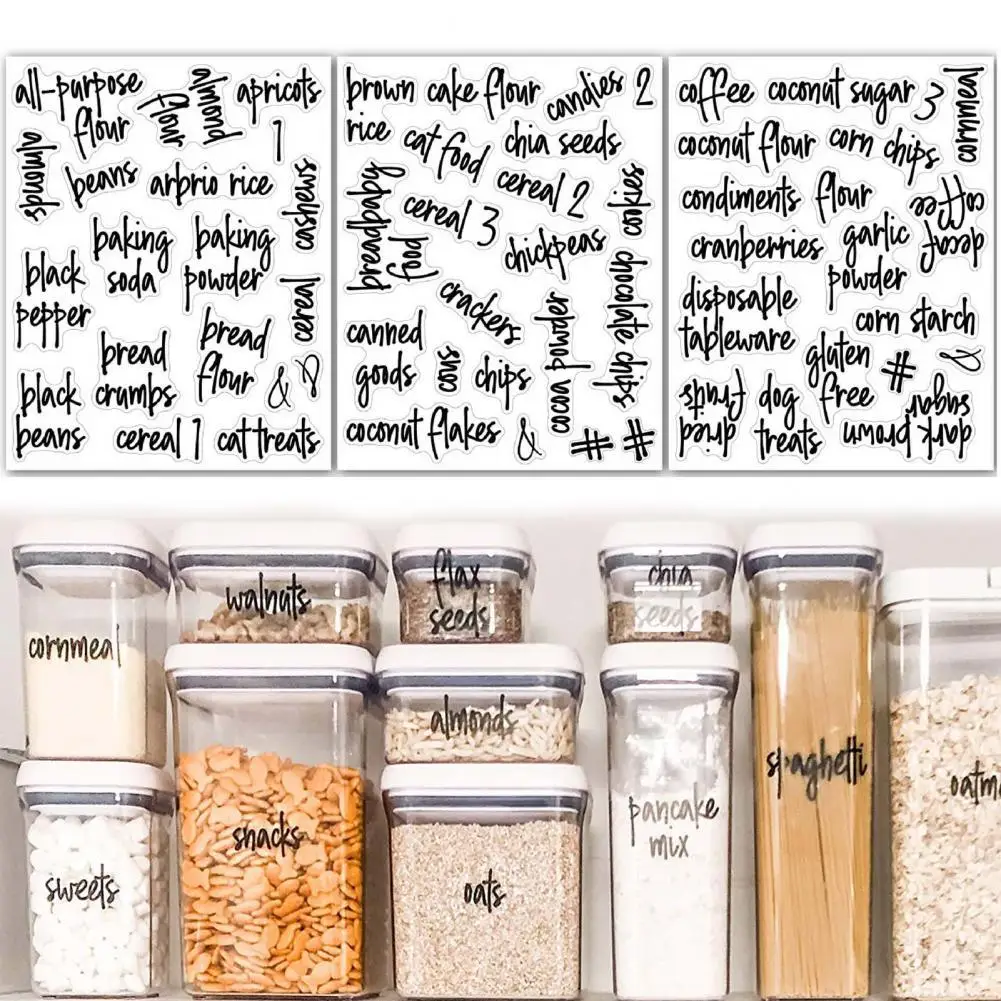 all-purpose
flour
almond
flour
apricots
1
almonds
beans
arbrio rice
cashews
baking
soda
baking
powder
black
pepper
cereal
bread
crumbs
bread
flour
&
&
black
beans
cereal 1
cat treats
brown
rice
cake flour
candies
2
cat food
chia seeds
cereal 2
cookies
breadbaby
food
cereal 3
chickpeas
crackers
chocolate chips
canned
goods
cocoa powder
chips
coconut flakes
&
#
#
coffee
coconut sugar
3
cornmeal
coconut flour
corn chips
condiments
flour
coffee
decaf
cranberries
garlic
powder
disposable
tableware
corn starch
gluten
free
#
&
dried
fruits
dog
treats
dark brown
sugar
cornmeal
walnuts
flax
seeds
chia
seeds
almonds
spaghetti
oatm
snacks
pancake
mix
sweets
oats